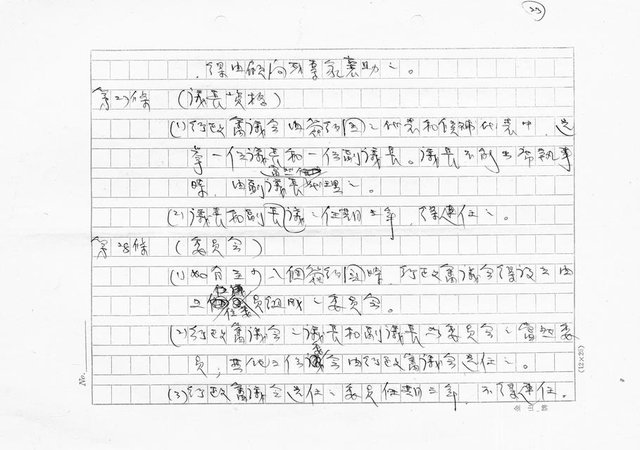 23
得由顧問或專家襄助之。
第27條 (議長資格)
(1)行政審議會由簽約國之代表和候補代表中,選
拿一位議長和一位副議長。議長不能出席執事
時,由副議長代理之。
(2)議長和副長議之任期三年,得連任之。
第28條 (委員會)
(1)如有至少八個簽約國時,行政審議會得設立由
五位委員組成之委員會。
(2)行政審議會之議長和副議長為委員會之當然委
員,其他三位委會由行政審議會選任之。
(3)行政審議會選任之委員任期三年,不得連任。
No.
(12×25)